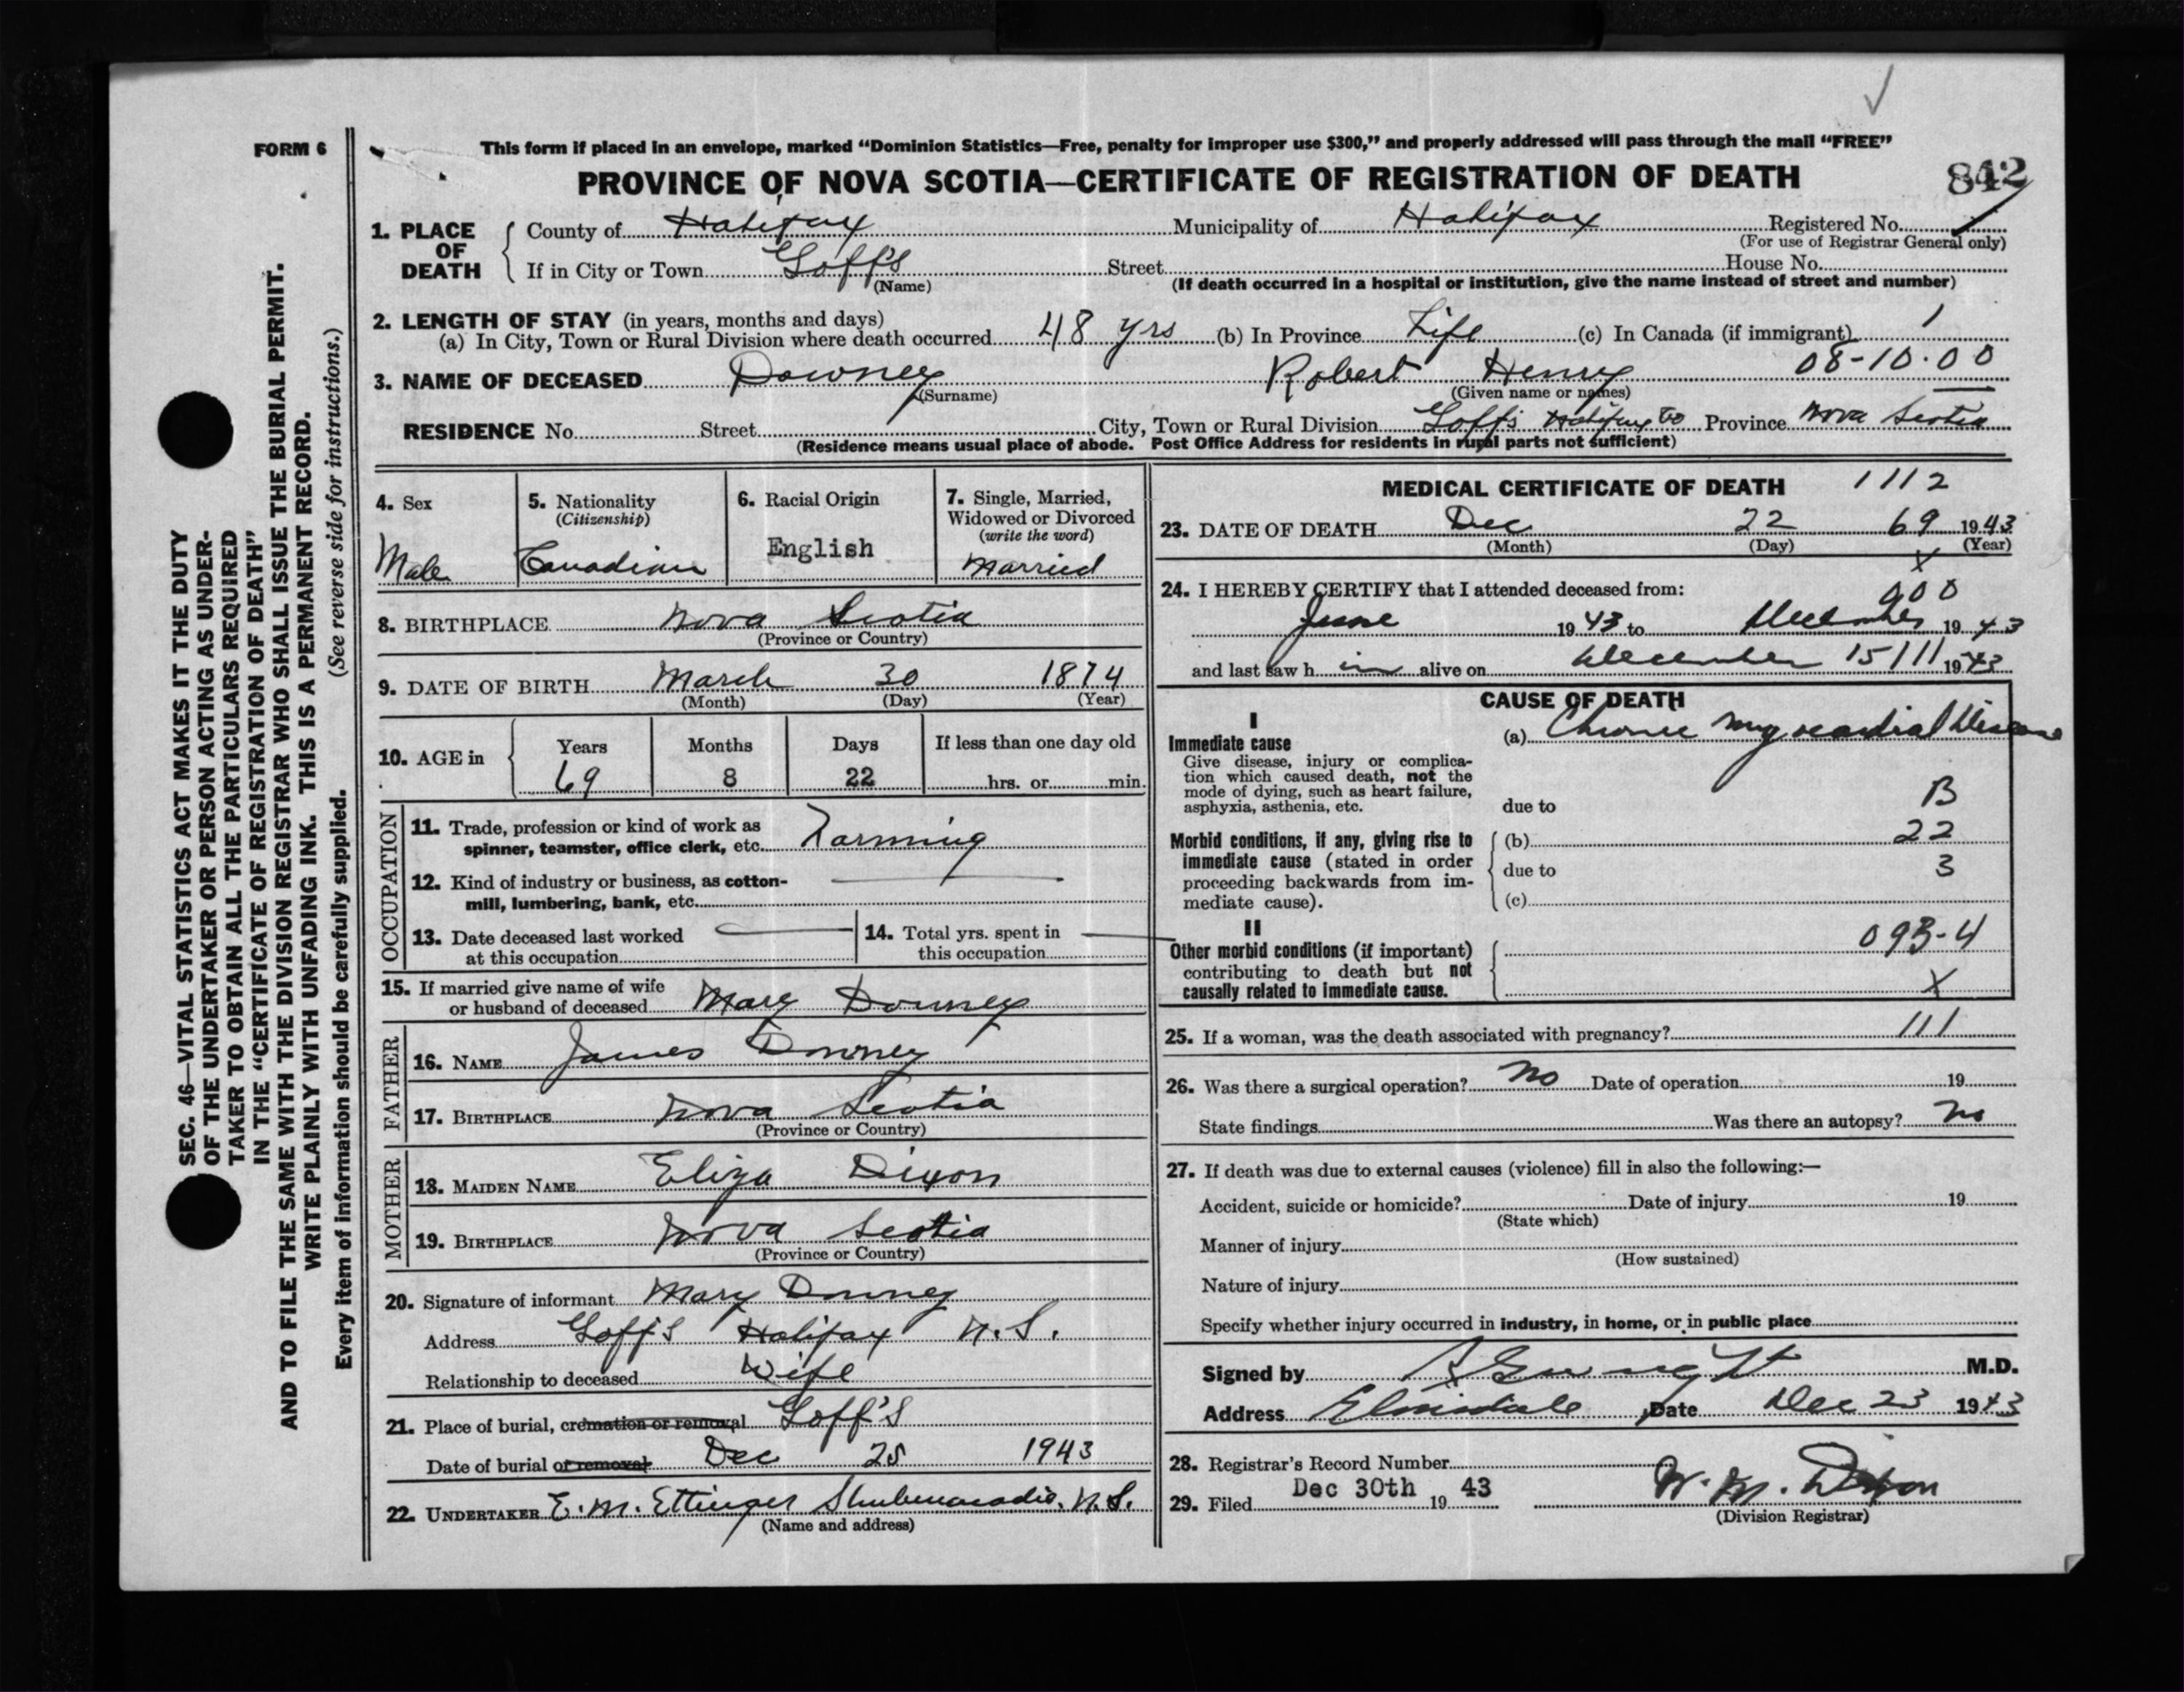 FORM 6
This form if placed in an envelope, marked "Dominion Statistics—Free, penalty for improper use $300," and properly addressed will pass through the mail "FREE"
PROVINCE OF NOVA SCOTIA—CERTIFICATE OF REGISTRATION OF DEATH
842
1. PLACE OF DEATH
County of Halifax Municipality of Halifax Registered No.
(For use of Registrar General only)
If in City or Town Goff's Street House No.
(Name) (If death occurred in a hospital or institution, give the name instead of street and number)
2. LENGTH OF STAY (in years, months and days)
(a) In City, Town or Rural Division where death occurred 48 yrs (b) In Province Life (c) In Canada (if immigrant) 1
08-10-00
3. NAME OF DECEASED Downey Robert Henry
(Surname) (Given name or names)
RESIDENCE No. Street City, Town or Rural Division Goff's Halifax Co Province Nova Scotia
(Residence means usual place of abode. Post Office Address for residents in rural parts not sufficient)
4. Sex Male
5. Nationality (Citizenship) Canadian
6. Racial Origin English
7. Single, Married, Widowed or Divorced (write the word) Married
8. BIRTHPLACE Nova Scotia
(Province or Country)
9. DATE OF BIRTH March 30 1874
(Month) (Day) (Year)
10. AGE in Years Months Days If less than one day old
69 8 22 hrs. or min.
OCCUPATION
11. Trade, profession or kind of work as
spinner, teamster, office clerk, etc. Farming
12. Kind of industry or business, as cotton-
mill, lumbering, bank, etc.
13. Date deceased last worked
at this occupation
14. Total yrs. spent in
this occupation
15. If married give name of wife
or husband of deceased Mary Downey
FATHER
16. NAME James Downey
17. BIRTHPLACE Nova Scotia
(Province or Country)
MOTHER
18. MAIDEN NAME Eliza Dixon
19. BIRTHPLACE Nova Scotia
(Province or Country)
20. Signature of informant Mary Downey
Address Goff's Halifax N.S.
Relationship to deceased Wife
21. Place of burial, cremation or removal Goff's
Date of burial or removal Dec 25 1943
22. UNDERTAKER E. M. Ettinger Shubenacadie, N.S.
(Name and address)
MEDICAL CERTIFICATE OF DEATH 1112
23. DATE OF DEATH Dec 22 69 1943
(Month) (Day) (Year)
X
24. I HEREBY CERTIFY that I attended deceased from:
900
June 1943 to December 1943
and last saw h im alive on December 15 / 11 1943
CAUSE OF DEATH
I
Immediate cause
Give disease, injury or complica-
tion which caused death, not the
mode of dying, such as heart failure,
asphyxia, asthenia, etc.
(a) Chronic myocardial Disease
due to B
Morbid conditions, if any, giving rise to
immediate cause (stated in order
proceeding backwards from im-
mediate cause).
(b) 22
due to 3
(c)
II
Other morbid conditions (if important)
contributing to death but not
causally related to immediate cause.
093-4
X
25. If a woman, was the death associated with pregnancy? 111
26. Was there a surgical operation? No Date of operation 19
State findings Was there an autopsy? No
27. If death was due to external causes (violence) fill in also the following:—
Accident, suicide or homicide? Date of injury 19
(State which)
Manner of injury
(How sustained)
Nature of injury
Specify whether injury occurred in industry, in home, or in public place
Signed by M.D.
Address Elmsdale Date Dec 23 1943
28. Registrar's Record Number
29. Filed Dec 30th 19 43 W. M. Dixon
(Division Registrar)
SEC. 46—VITAL STATISTICS ACT MAKES IT THE DUTY
OF THE UNDERTAKER OR PERSON ACTING AS UNDER-
TAKER TO OBTAIN ALL THE PARTICULARS REQUIRED
IN THE "CERTIFICATE OF REGISTRATION OF DEATH"
AND TO FILE THE SAME WITH THE DIVISION REGISTRAR WHO SHALL ISSUE THE BURIAL PERMIT.
WRITE PLAINLY WITH UNFADING INK. THIS IS A PERMANENT RECORD.
Every item of information should be carefully supplied. (See reverse side for instructions.)